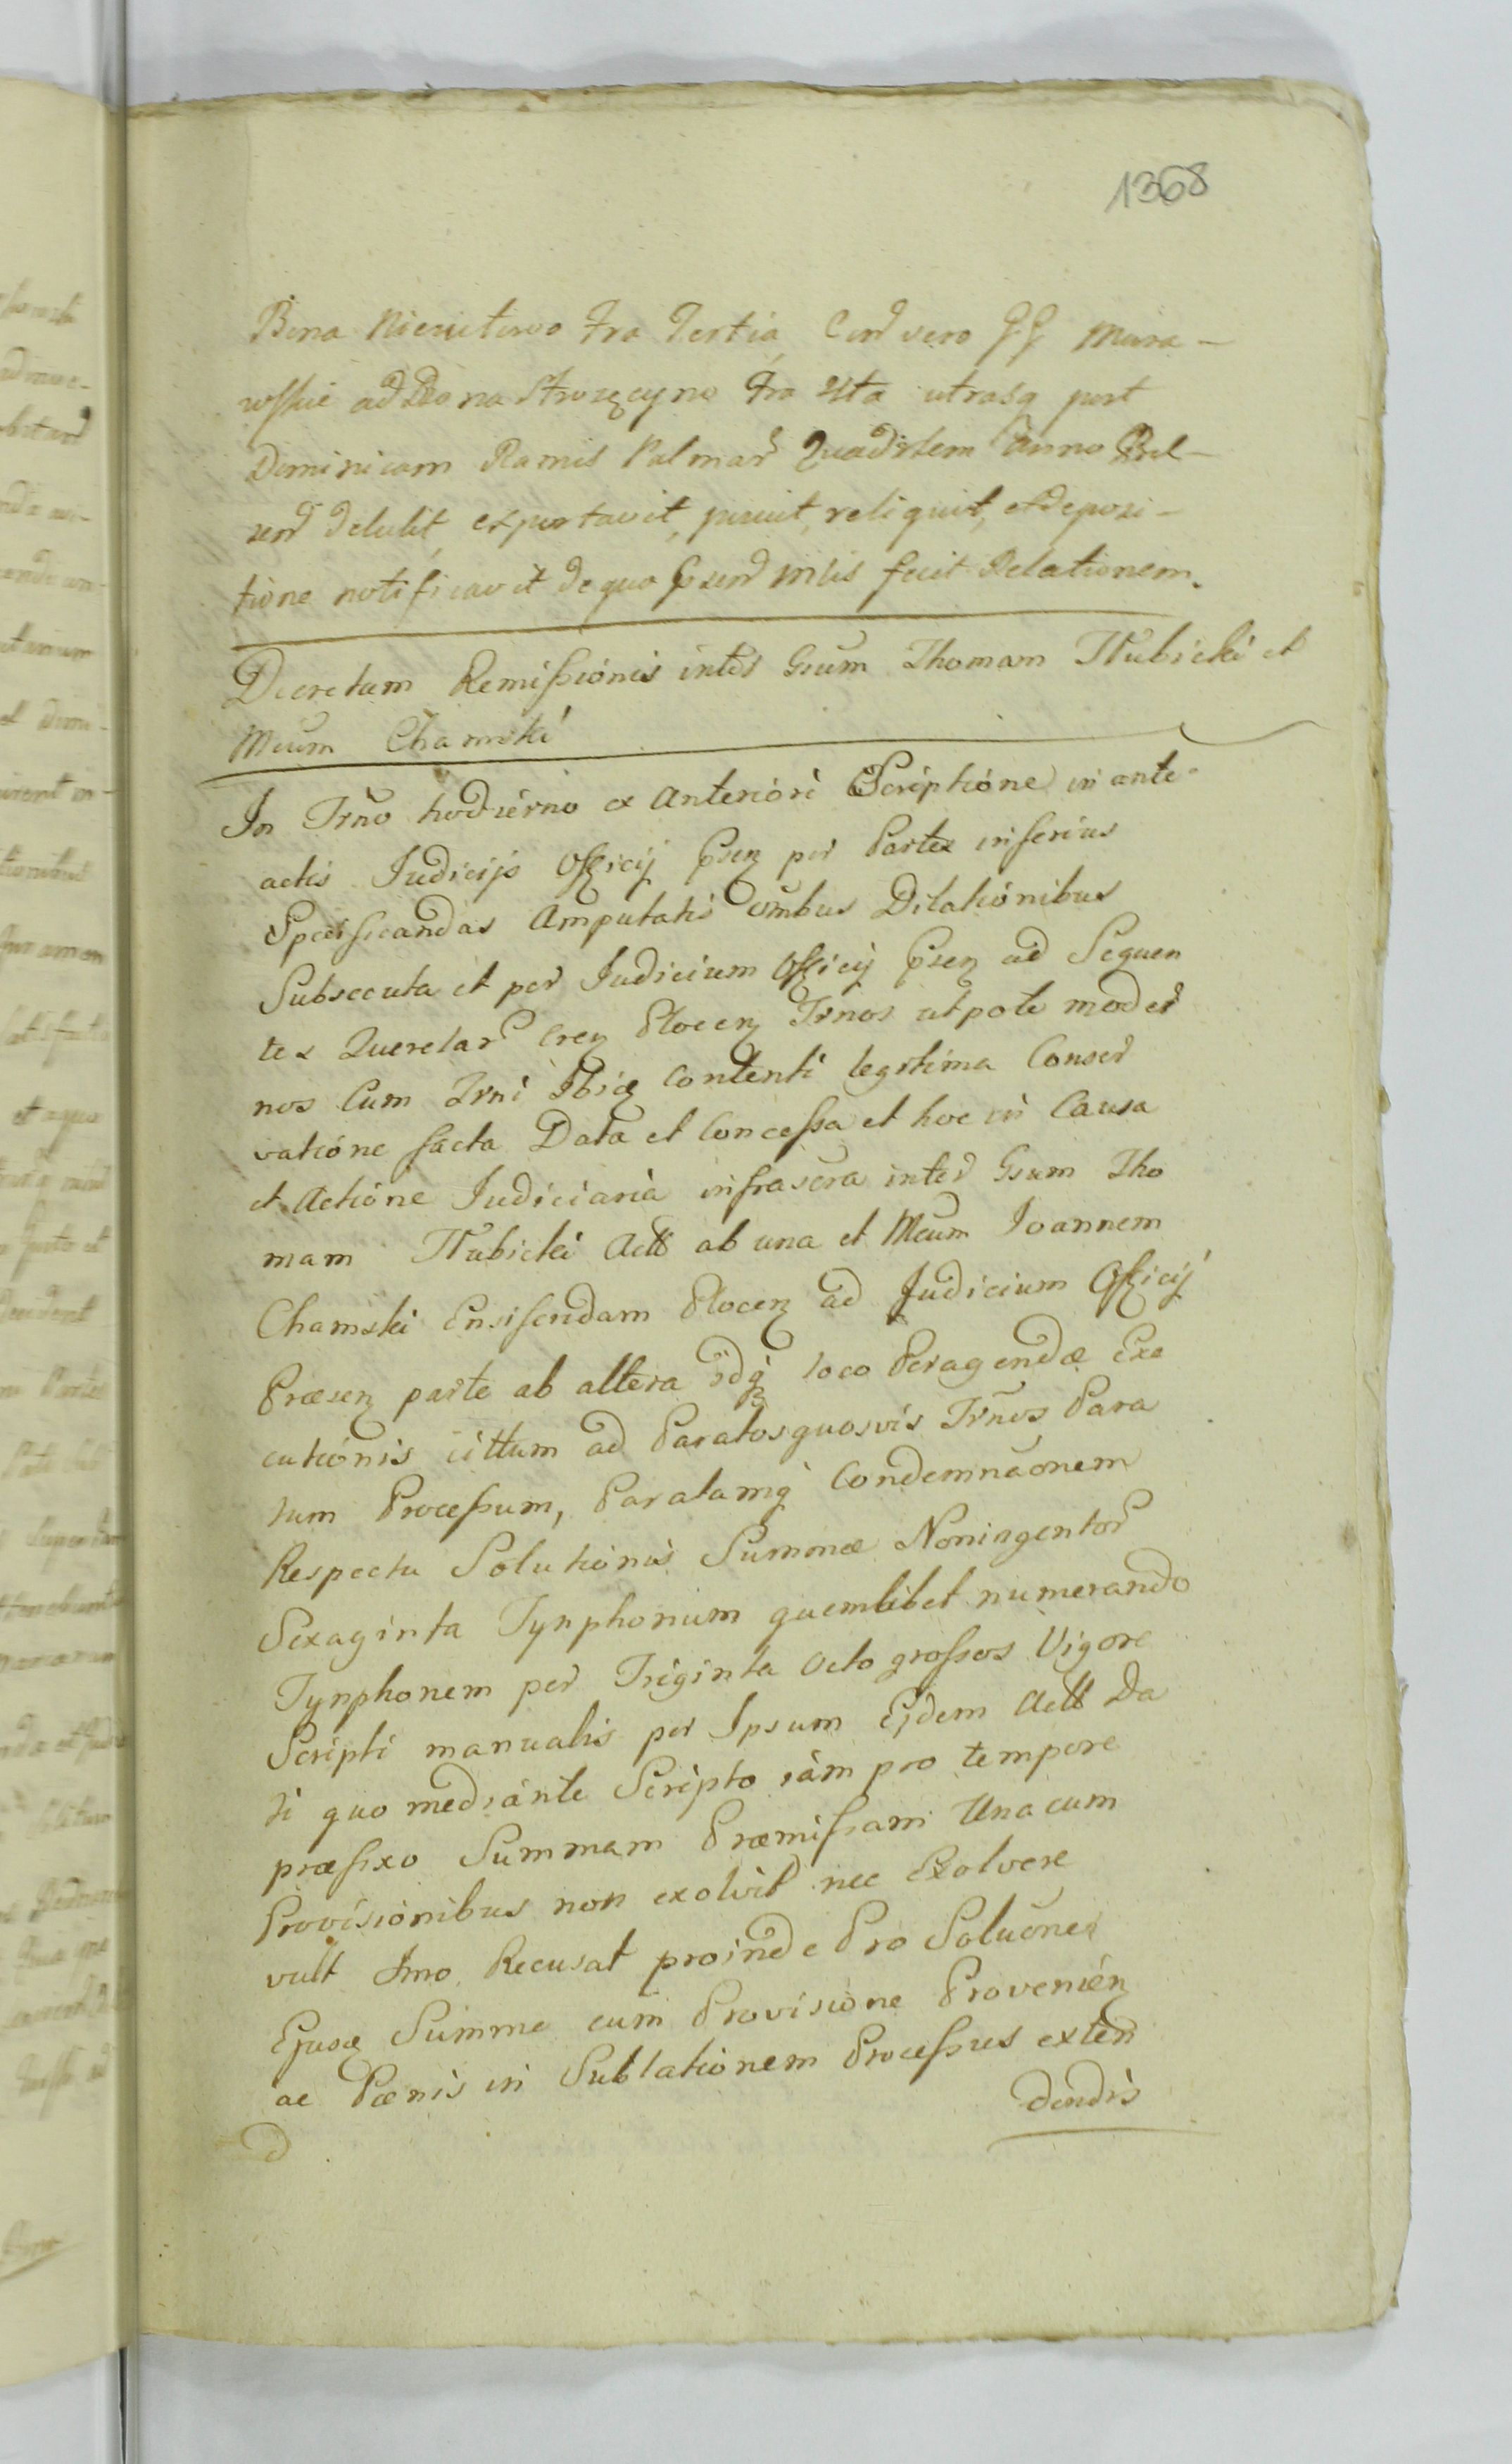 1368
Bona Niewitowo fra Tertia Cend vero GG Mura-
wskie ad Bona Strozęcyno fra 4ta utrasq post
Dominicam Ramis Palmar Quadrlem Anno
detulit, exportavit, posuit, reliquit, et deposi-
tione notificavit de quo Gsend mlis fecit Relationem.
Decretum Remissionis inter Gsum Thomam Hłubicki et
Mcum Chamski
In Trno hodierno ex Anteriori Pscriptione in ante
actis Iudicijs Officij Psen per Partes inferius
Specificandas Amputatis ombus Dilationibus
Subsecuta et per Iudicium Officij Psen ad Sequen
tes Querelar Cren Plocen Trnos utpote moder
nos Cum Trni Ibiq Contenti legitima Conser
vatione facta Data et Concessa et hoc in Causa
et Actione Iudiciaria infrascra inter Gsum Tho
mam Hłubicki Actt ab una et Mcum Ioannem
Chamski Ensiferidam Plocen ad Iudicium Officij
Præsen parte ab altera idq loco Peragendæ Exe
cutionis ad Paratos quosvis Trnos Para
tum Processum, Paratamq Condemnaonem
Respectu Solutionis Summæ Noningentor
Sexaginta Tynphonum quemlibet numerando
Tynphonem per Triginta Octo grossos Vigore
Scripti manualis per Ipsum Ejdem Actt Da
ti quo mediante Scripto iam pro tempore
præfixo Summam Præmissam Una cum
Provisionibus non exolvit nec Exolvere
vult Imo Recusat proinde Pro Soluone
Ejusq Summe cum Provisione Provenien
ac Pænis in Sublationem Processus exten
dendis